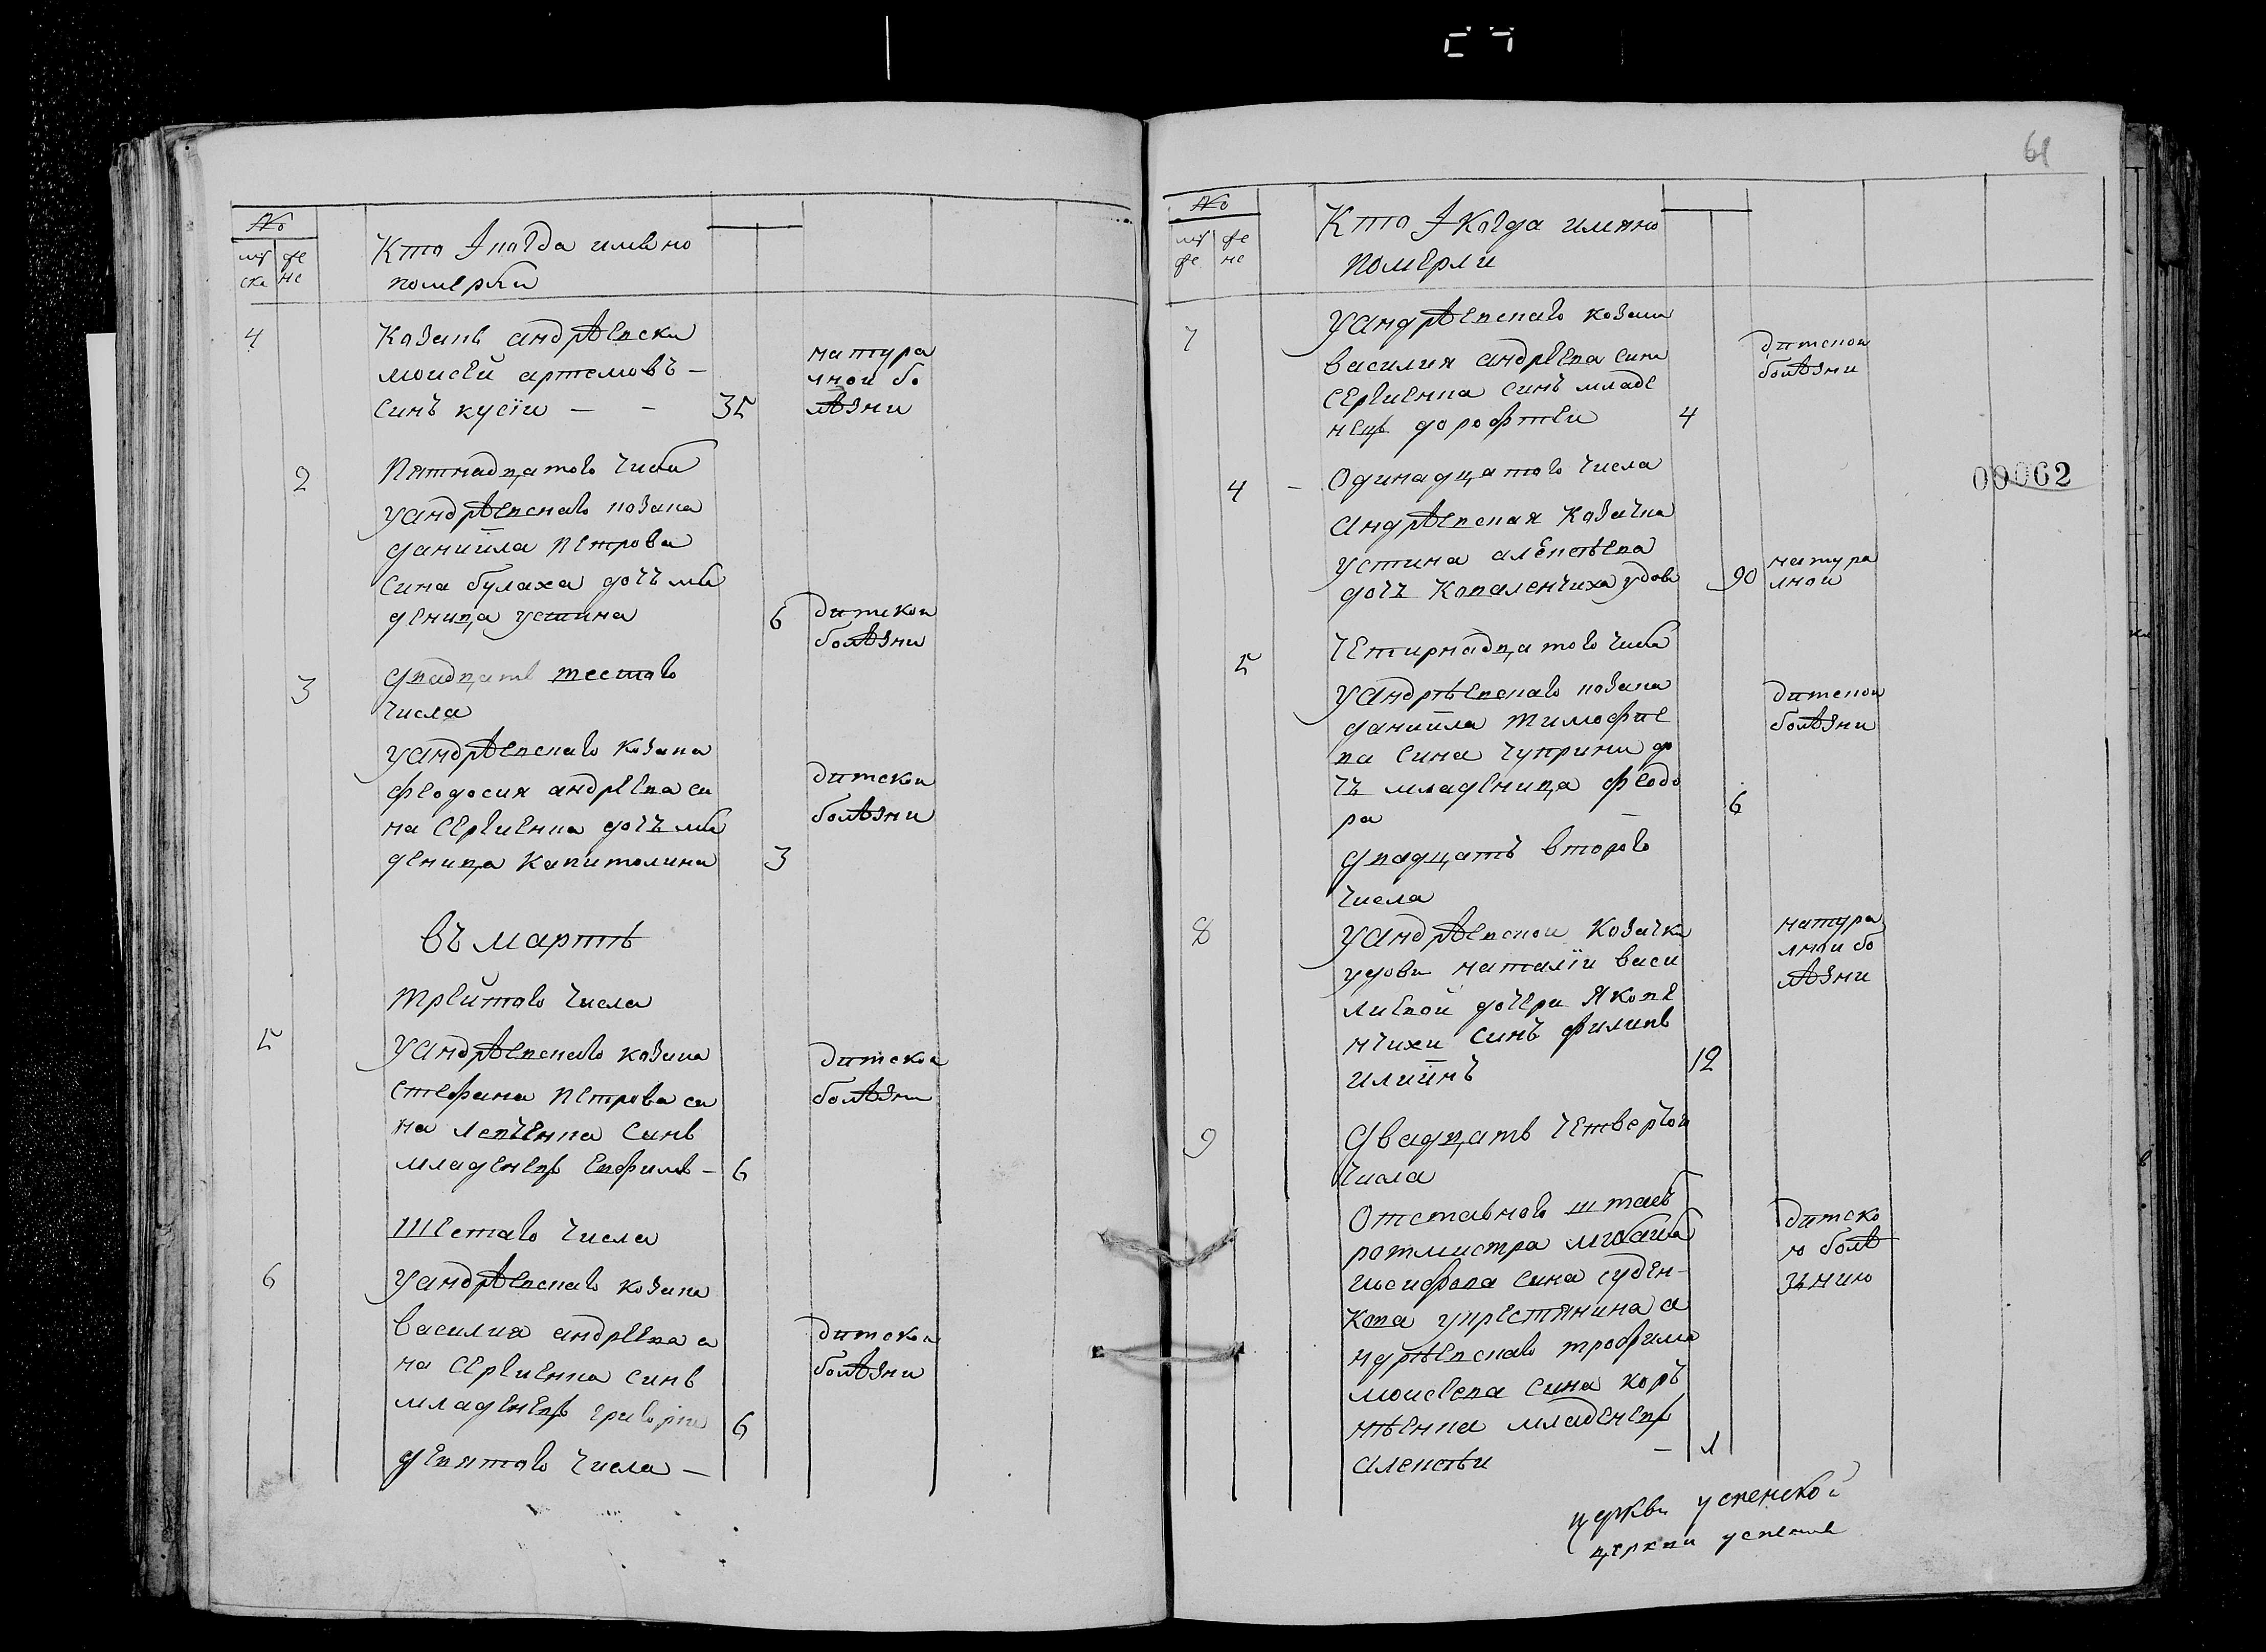 №
му ска
фе не
Кто I когда имено
померли
4
Козакъ андрѣевски
моисей артемовъ —
синъ кусiи — — 35
натура
лной бо
лѣзни
2
Пятнадцатого числа
У андрѣевскаго козака
даниила петрова
сина булаха дочъ мла
деница устина 6
дитской
болѣзни
3
Двадцать шестого
числа
У андрѣевскаго козака
феодосия андреева си
на Сергиенка дочъ мла
деница капитолина 3
дитской
болѣзни
въ мартѣ
Трейтого числа
5
У андрѣевскаго козака
стефана петрова си
на левченка синъ
младенецъ Евфимъ — 6
дитской
болѣзни
Шестаго числа
6
У андрѣевскаго козака
василия андреева си
на Сергиенка синъ
младенецъ григорiи 6
дитской
болѣзни
девятого числа —
61
№
му фе
фе не
Кто I когда имяно
померли
7
У андрѣевскаго козака
василия андреева сина
Сергиенка синъ младе
нецъ дорофтеи 4
дитской
болѣзни
4 — Одинадцатого числа
Андрѣевская Козачка
устина алексѣева
дочъ Коваленчиха удова 90
натура
лной
00062
5
Четирнадцатого числа
У андрѣевскаго козака
даниила тимофие
ва сина чуприни до
чъ младеница феодо
ра 6
дитской
болѣзни
Двадцатъ второго
числа
8
У андрѣевской козачки
удови наталiи васи
лиевой дочери Якове
нчихи синъ филипъ
илиинъ 12
натура
лной бо
лѣзни
9
Двадцать четвертого
числа
Отставного штабъ
ротмистра михаила
иосифова сина суден-
кова укрестянина а
ндрѣевскаго трофима
моисеева сина коръ
нѣенка младенецъ
алексѣи — 1
дитско
ю болѣ
зънию
церкви успенской
церкви успение